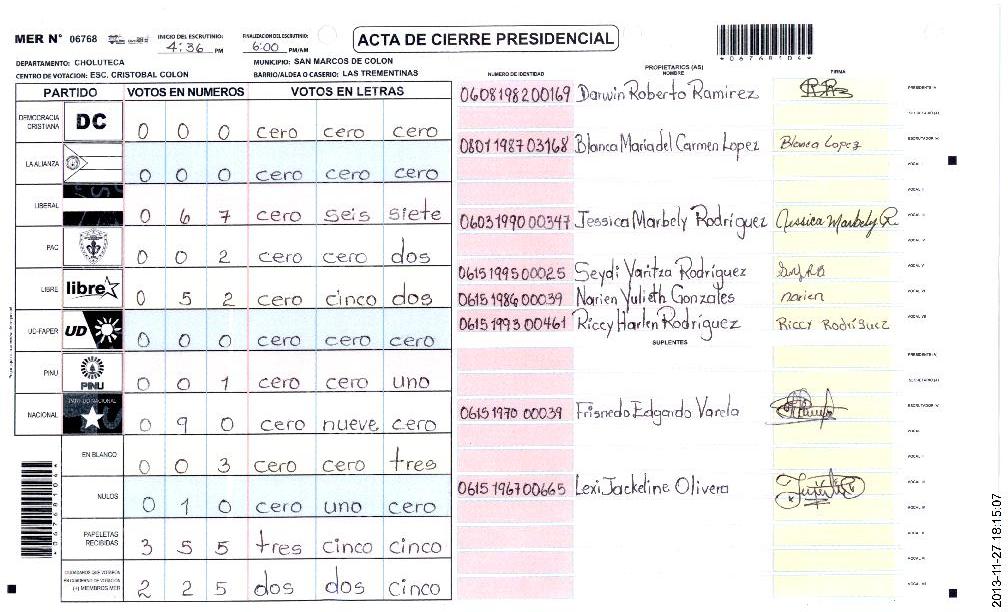 MER N° 06768 INICIO DEL ESCRUTINIO: 4:36 PM FINALIZACION DEL ESCRUTINIO: 6:00 PM/AM
ACTA DE CIERRE PRESIDENCIAL
*06768104*
DEPARTAMENTO: CHOLUTECA MUNICIPIO: SAN MARCOS DE COLON
CENTRO DE VOTACION: ESC. CRISTOBAL COLON BARRIO/ALDEA O CASERIO: LAS TREMENTINAS
PARTIDO VOTOS EN NUMEROS VOTOS EN LETRAS
DEMOCRACIA CRISTIANA DC 0 0 0 cero cero cero
LA ALIANZA 0 0 0 cero cero cero
LIBERAL 0 6 7 cero seis siete
PAC 0 0 2 cero cero dos
LIBRE libre 0 5 2 cero cinco dos
UD-FAPER UD 0 0 0 cero cero cero
PINU PINU 0 0 1 cero cero uno
NACIONAL PARTIDO NACIONAL 0 9 0 cero nueve cero
EN BLANCO 0 0 3 cero cero tres
NULOS 0 1 0 cero uno cero
PAPELETAS RECIBIDAS 3 5 5 tres cinco cinco
CIUDADANOS QUE VOTARON EN CUADERNO DE VOTACION (+) MIEMBROS MER 2 2 5 dos dos cinco
NUMERO DE IDENTIDAD PROPIETARIOS (AS) NOMBRE FIRMA
0608198200169 Darwin Roberto Ramirez PRESIDENTE/A
SECRETARIO (A)
0801198703168 Blanca Maria del Carmen Lopez Blanca Lopez ESCRUTADOR (A)
VOCAL I
VOCAL II
0603199000347 Jessica Marbely Rodríguez Jessica Marbely R. VOCAL III
VOCAL IV
0615199500025 Seydi Yaritza Rodríguez VOCAL V
0615198600039 Narien Yulieth Gonzales narien VOCAL VI
0615199300461 Riccy Harlen Rodríguez Riccy Rodríguez VOCAL VII
SUPLENTES
PRESIDENTE/A
SECRETARIO (A)
0615197000039 Frisnedo Edgardo Varela ESCRUTADOR (A)
VOCAL I
VOCAL II
0615196700665 Lexi Jackeline Olivera VOCAL III
VOCAL IV
VOCAL V
VOCAL VI
VOCAL VII
*06768104*
2013-11-27 18:15:07